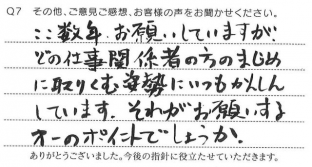 Q7 その他、ご意見ご感想、お客様の声をお聞かせください。
ここ数年、お願いしていますが、
どの仕事関係者の方のまじめ
に取りくむ姿勢にいつもかんしん
しています。それがお願いする
オーのポイントでしょうか。
ありがとうございました。今後の指針に役立たせていただきます。